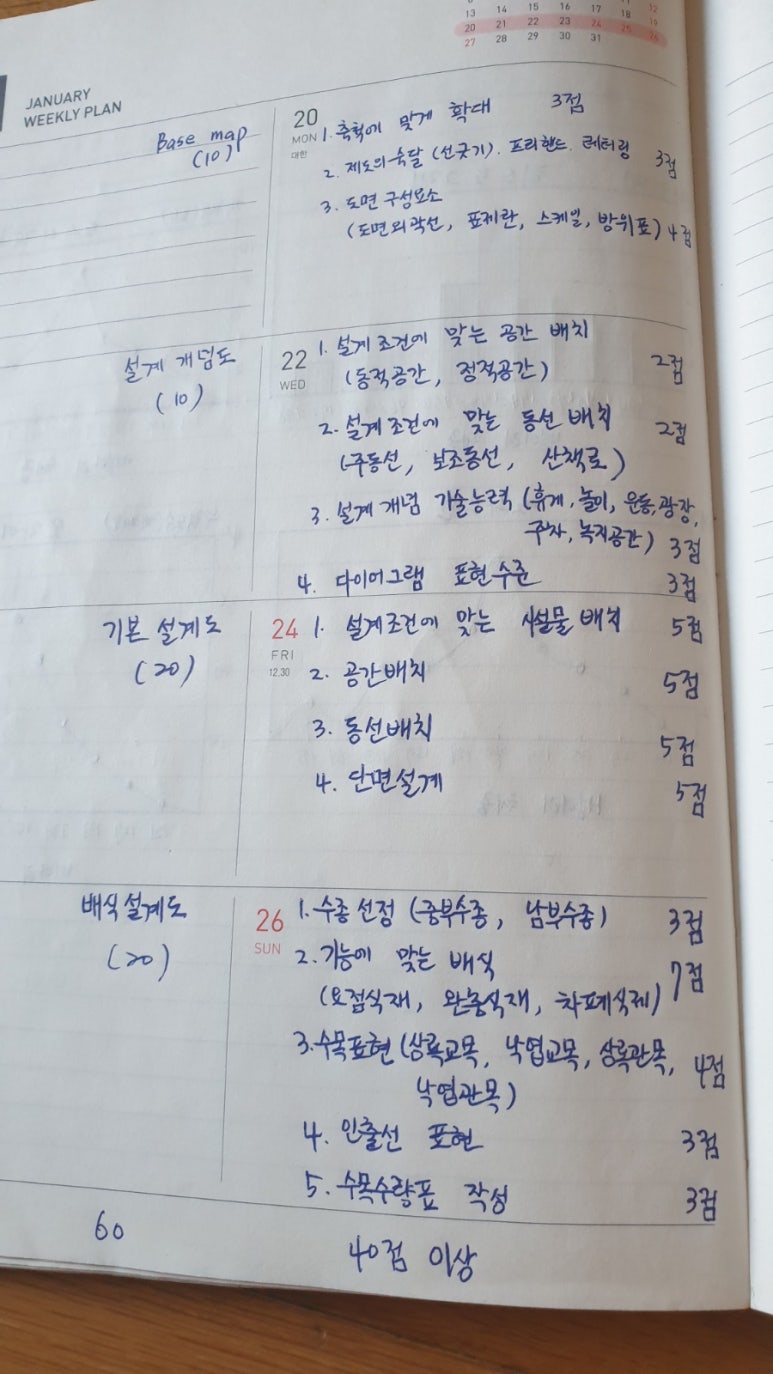 12
13 14 15 16 17 18 19
20 21 22 23 24 25 26
27 28 29 30 31
JANUARY
WEEKLY PLAN
Base map
(10)
20
MON
대한
1. 축척에 맞게 확대 3점
2. 제도의 숙달 (선긋기). 프리핸드. 레터링 3점
3. 도면 구성요소
(도면외곽선, 표제란, 스케일, 방위표) 4점
설계 개념도
(10)
22
WED
1. 설계조건에 맞는 공간 배치
(동적공간, 정적공간) 2점
2. 설계조건에 맞는 동선 배치 2점
(주동선, 보조동선, 산책로)
3. 설계 개념 기술능력 (휴게, 놀이, 운동, 광장,
주차, 녹지공간) 3점
4. 다이어그램 표현수준 3점
기본 설계도
(20)
24
FRI
12.30
1. 설계조건에 맞는 시설물 배치 5점
2. 공간배치 5점
3. 동선배치 5점
4. 단면설계 5점
배식설계도
(20)
26
SUN
1. 수종선정 (중부수종, 남부수종) 3점
2. 기능에 맞는 배식 7점
(요점식재, 완충식재, 차폐식제)
3. 수목표현 (상록교목, 낙엽교목, 상록관목, 4점
낙엽관목)
4. 인출선 표현 3점
5. 수목수량표 작성 3점
60
40점 이상